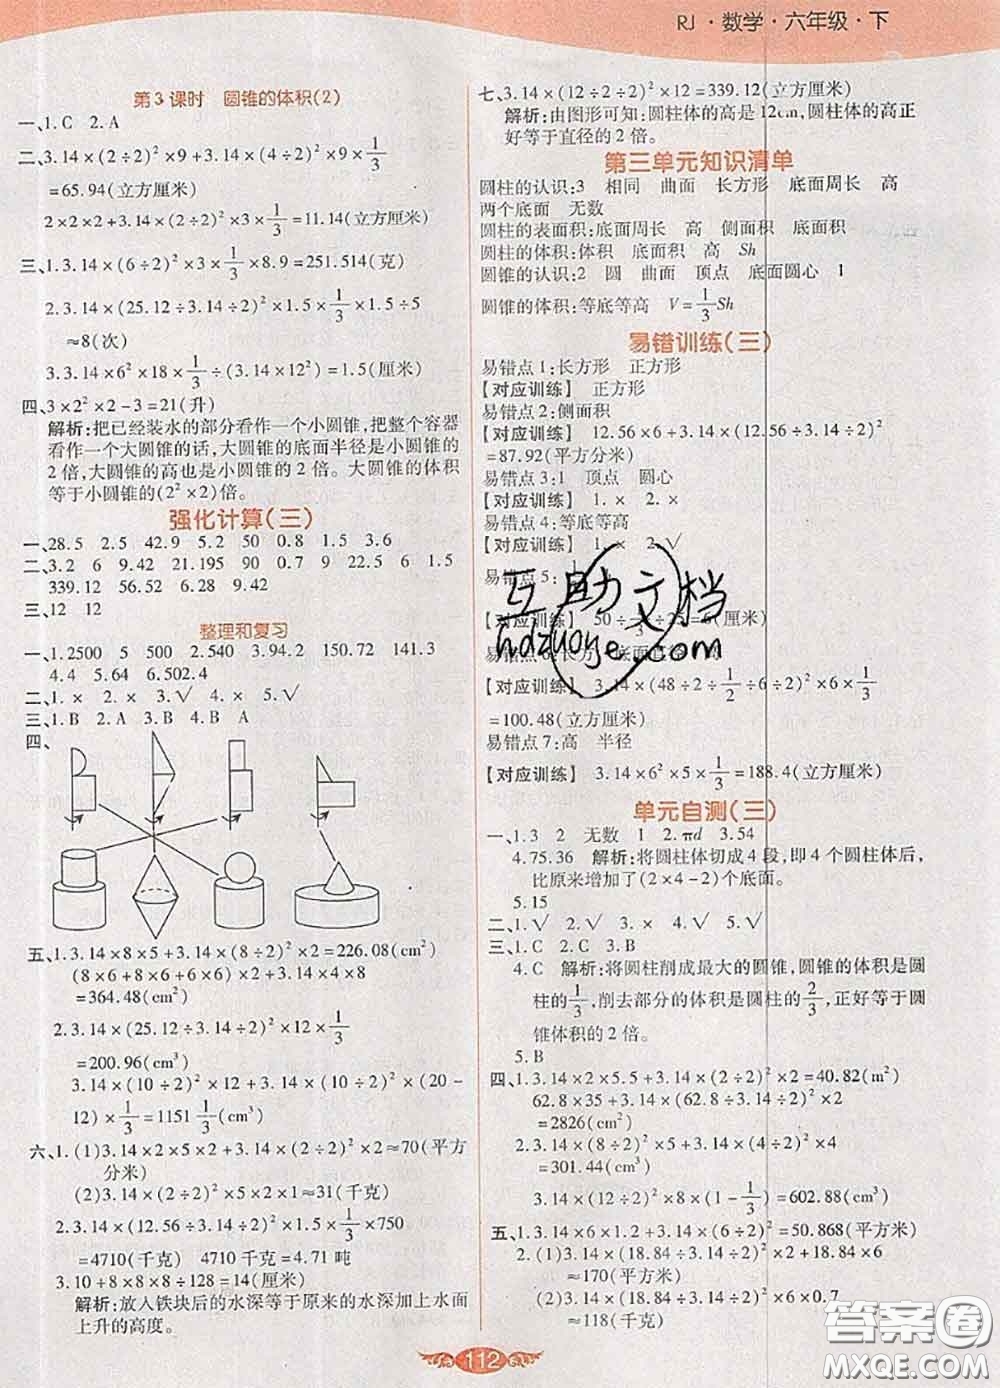 RJ·数学·六年级·下
第3课时　圆锥的体积(2)
一、1.C　2.A
二、3.14×(2÷2)²×9+3.14×(4÷2)²×9×1/3
=65.94(立方厘米)
2×2×2+3.14×(2÷2)²×3×1/3=11.14(立方厘米)
三、1.3.14×(6÷2)²×3×1/3×8.9=251.514(克)
2.3.14×(25.12÷3.14÷2)²×1.5×1/3×1.5÷5
≈8(次)
3.3.14×6²×18×1/3÷(3.14×12²)=1.5(厘米)
四、3×2²×2-3=21(升)
解析:把已经装水的部分看作一个小圆锥,把整个容器
看作一个大圆锥的话,大圆锥的底面半径是小圆锥的
2倍,大圆锥的高也是小圆锥的2倍。大圆锥的体积
等于小圆锥的(2²×2)倍。
强化计算(三)
一、28.5　2.5　42.9　5.2　50　0.8　1.5　3.6
二、3.2　6　9.42　21.195　90　0.9　22.6　6　1.5
339.12　56.52　6.28　9.42
三、12　12
整理和复习
一、1.2500　5　500　2.540　3.94.2　150.72　141.3
4.4　5.64　6.502.4
二、1.×　2.×　3.√　4.×　5.√
三、1.B　2.A　3.B　4.B　A
四、
五、1.3.14×8×5+3.14×(8÷2)²×2=226.08(cm²)
(8×6+8×6+6×6)×2+3.14×4×8
=364.48(cm²)
2.3.14×(25.12÷3.14÷2)²×12×1/3
=200.96(cm³)
3.14×(10÷2)²×12+3.14×(10÷2)²×(20-
12)×1/3=1151 1/3(cm³)
六、1.(1)3.14×2×5×2+3.14×(2÷2)²×2≈70(平方
分米)
(2)3.14×(2÷2)²×5×2×1≈31(千克)
2.3.14×(12.56÷3.14÷2)²×1.5×1/3×750
=4710(千克)　4710千克=4.71吨
3.10+8×8×8÷128=14(厘米)
解析:放入铁块后的水深等于原来的水深加上水面
上升的高度。
七、3.14×(12÷2÷2)²×12=339.12(立方厘米)
解析:由图形可知:圆柱体的高是12cm,圆柱体的高正
好等于直径的2倍。
第三单元知识清单
圆柱的认识:3　相同　曲面　长方形　底面周长　高
两个底面　无数
圆柱的表面积:底面周长　高　侧面积　底面积
圆柱的体积:体积　底面积　高　Sh
圆锥的认识:2　圆　曲面　顶点　底面圆心　1
圆锥的体积:等底等高　V=1/3Sh
易错训练(三)
易错点1:长方形　正方形
【对应训练】　正方形
易错点2:侧面积
【对应训练】　12.56×6+3.14×(12.56÷3.14÷2)²
=87.92(平方分米)
易错点3:1　顶点　圆心
【对应训练】　1.×　2.×
易错点4:等底等高
【对应训练】　1.×　2.√
易错点5:
【对应训练】　50÷1/3÷25=6(厘米)
易错点6:长方　底面直径　高
【对应训练】　3.14×(48÷2÷1/2÷6÷2)²×6×1/3
=100.48(立方厘米)
易错点7:高　半径
【对应训练】　3.14×6²×5×1/3=188.4(立方厘米)
单元自测(三)
一、1.3　2　无数　1　2.πd　3.54
4.75.36　解析:将圆柱体切成4段,即4个圆柱体后,
比原来增加了(2×4-2)个底面。
5.15
二、1.√　2.√　3.√　4.×　5.×
三、1.C　2.C　3.B
4.C　解析:将圆柱削成最大的圆锥,圆锥的体积是圆
柱的1/3,削去部分的体积是圆柱的2/3,正好等于圆
锥体积的2倍。
5.B
四、1.3.14×2×5.5+3.14×(2÷2)²×2=40.82(m²)
62.8×35+3.14×(62.8÷3.14÷2)²×2
=2826(cm²)
2.3.14×(8÷2)²×5+3.14×(4÷2)²×4
=301.44(cm³)
3.14×(12÷2)²×8×(1-1/3)=602.88(cm³)
五、1.3.14×6×1.2+3.14×(6÷2)²=50.868(平方米)
2.(1)3.14×(18.84÷3.14÷2)²×2+18.84×6
≈170(平方米)
(2)3.14×(18.84÷3.14÷2)²×6×0.7
≈118(千克)
112
互助文档
hdzuoye.com
答案圈
MXQE.COM